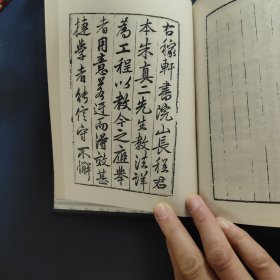 右稼軒書院山長程君
本朱真二先生教法詳
為工程以教今之應舉
者用意甚近而得效甚
捷學者能信守不懈